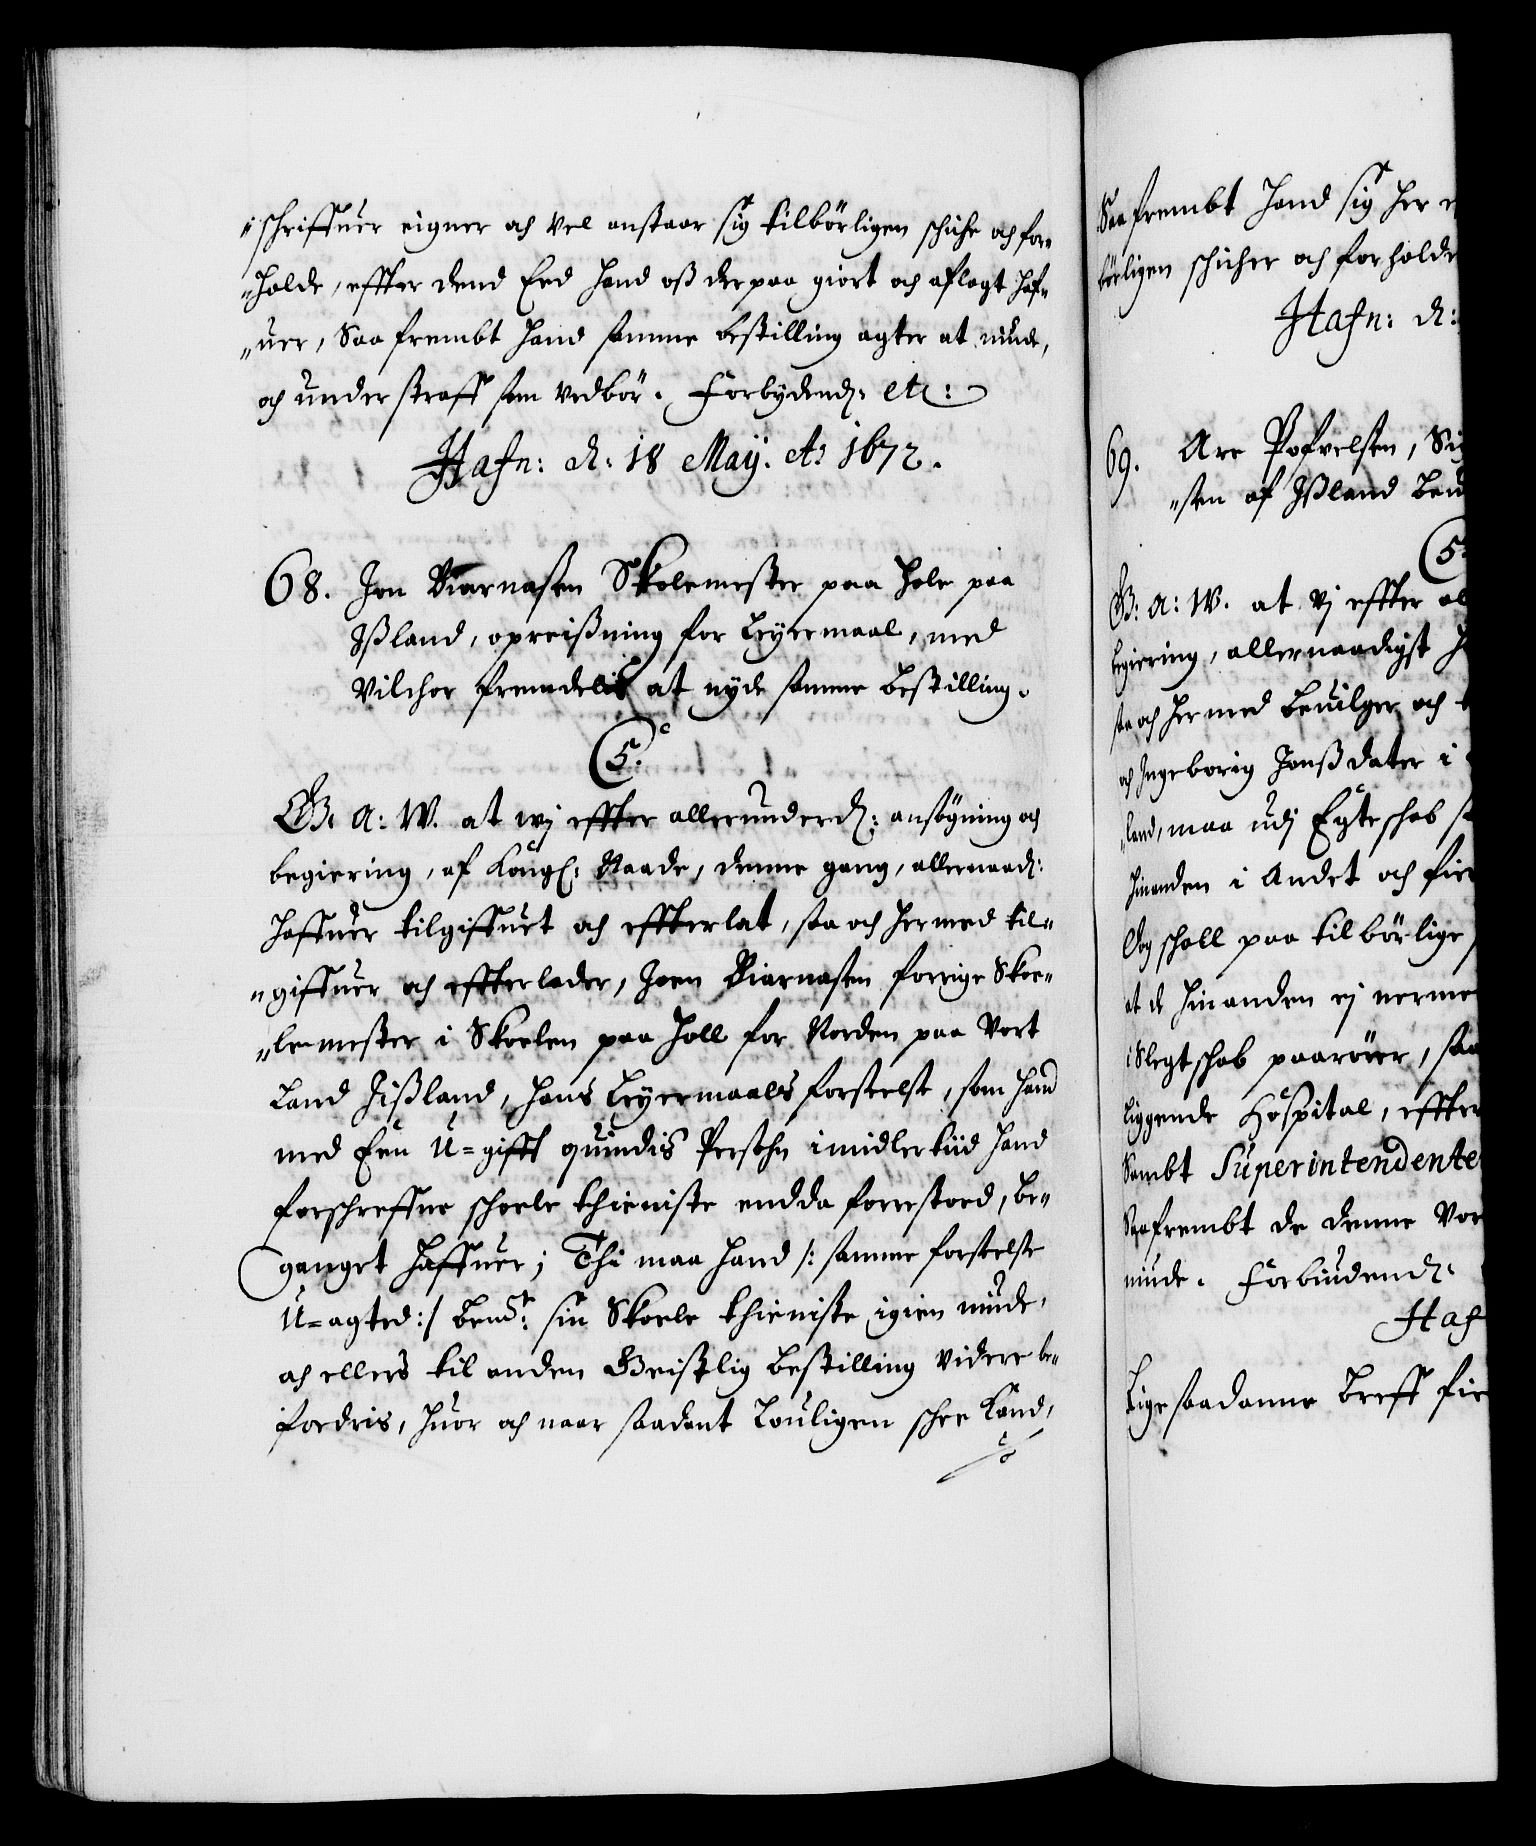 "schriffuer eigner och vel anstaar sig tilbörligen schiche och for-
"holde, effter dend Eed hand oß derpaa giort och aflagt haf-
"uer, Saa frembt hand samme bestilling agter at niude,
och under straff som vedbör. Forbydend: etc:
Hafn: d: 18 Maÿ. Ao 1672.
68. Jon Biarnasen Skolemester paa Hole paa
Ißland, opreißning for Leÿermaal, med
Vilchor fremdelis at nÿde samme bestilling.
C 5.
G. A: W. at wj effter allerunderd: ansögning och
begiering, af Kongl: Naade, denne gang, allernaad:
haffuer tilgiffuet och effterlat, saa och hermed til-
"giffuer och effterlader, Joen Biarnasen forrige Skoe-
"lemester i Skoelen paa Holl for Norden paa Vort
Land Jißland, hans Leÿermaals forseelse, som hand
med Een U=gifft quindis Persohn imidlertiid hand
forschreffne schoele thieniste endda forrestoed, be-
ganget haffuer; Thi maa hand /: samme forseelse
U=agted :/ bemt: sin Skoele thieniste igien niude,
och ellers til anden Geistlig bestilling videre be-
fordris, huor och naar saadant Louligen schee kand,
Saa frembt hand sig her
börligen schicher och forholde
Hafn: d:
69. Are Pofvelsen, Si
"sen af Ißland beu
5
G: A: W. at vj effter al
begiering, allernaadigst h
saa och hermed beuilger och
och Ingeborig Jonßdater i
"land, maa udj Egteschab
hinanden i Andet och fie
Dog schall paa tilbörlige
at de hinanden ej nerme
i Slegtschab paarörer, saa
liggende Hospital, effter
Sambt Superintendente
Saafrembt de denne Vor
niude. Forbiudend:
Haf
Lige saadanne breff fi